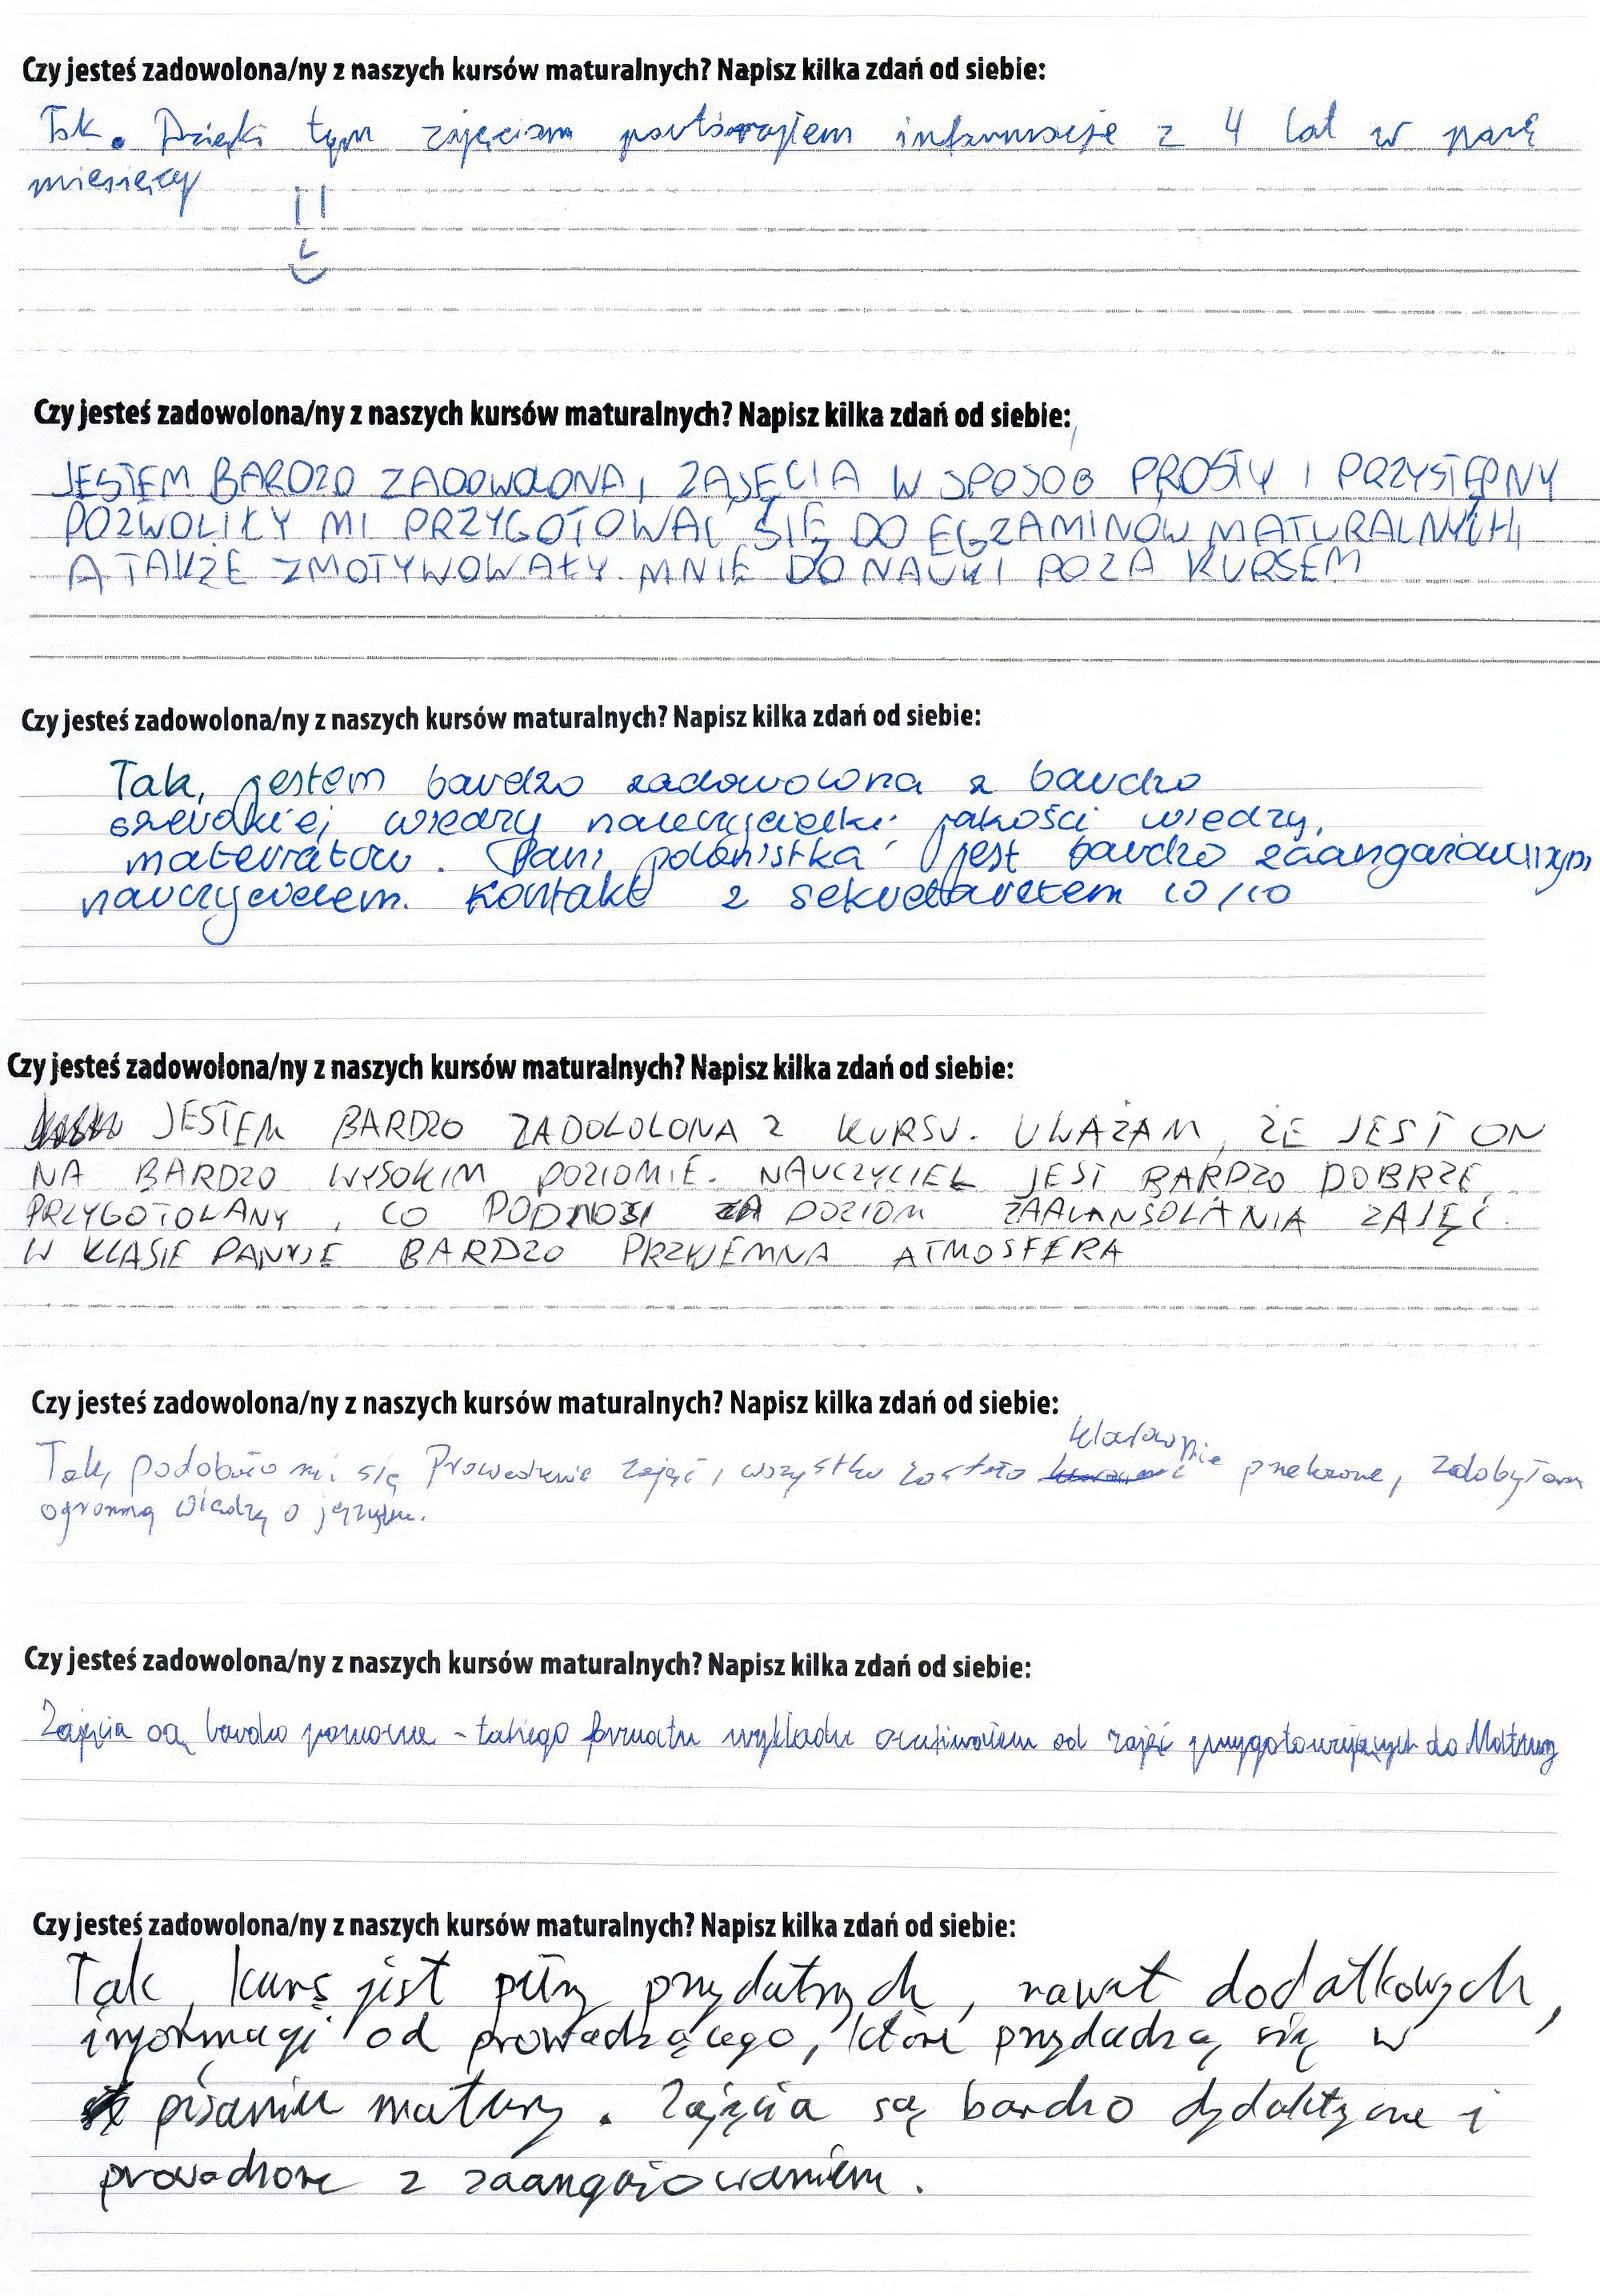 Czy jesteś zadowolona/ny z naszych kursów maturalnych? Napisz kilka zdań od siebie:
Tak. Dzięki tym zajęciom powtórzyłem informacje z 4 lat w parę
miesięcy
Czy jesteś zadowolona/ny z naszych kursów maturalnych? Napisz kilka zdań od siebie:
JESTEM BARDZO ZADOWOLONA, ZAJĘCIA W SPOSÓB PROSTY I PRZYSTĘPNY
POZWOLIŁY MI PRZYGOTOWAĆ SIĘ DO EGZAMINÓW MATURALNYCH,
A TAKŻE ZMOTYWOWAŁY MNIE DO NAUKI POZA KURSEM
Czy jesteś zadowolona/ny z naszych kursów maturalnych? Napisz kilka zdań od siebie:
Tak, jestem bardzo zadowolona z bardzo
szerokiej wiedzy nauczycielki jakości wiedzy,
materiałów. Pani polonistka jest bardzo zaangażowanym
nauczycielem. Kontakt z sekretariatem 10/10
Czy jesteś zadowolona/ny z naszych kursów maturalnych? Napisz kilka zdań od siebie:
JESTEM BARDZO ZADOWOLONA Z KURSU. UWAŻAM, ŻE JEST ON
NA BARDZO WYSOKIM POZIOMIE. NAUCZYCIEL JEST BARDZO DOBRZE
PRZYGOTOWANY, CO PODNOSI POZIOM ZAAWANSOWANIA ZAJĘĆ.
W KLASIE PANUJE BARDZO PRZYJEMNA ATMOSFERA
Czy jesteś zadowolona/ny z naszych kursów maturalnych? Napisz kilka zdań od siebie:
Tak, podobało mi się Prowadzenie zajęć, wszystko zostało klarownie przekazane, zdobyłam
ogromną wiedzę o języku.
Czy jesteś zadowolona/ny z naszych kursów maturalnych? Napisz kilka zdań od siebie:
Zajęcia są bardzo pomocne - takiego formatu wykładu oczekiwałem od zajęć przygotowujących do Matury
Czy jesteś zadowolona/ny z naszych kursów maturalnych? Napisz kilka zdań od siebie:
Tak, kurs jest pełny przydatnych, nawet dodatkowych,
informacji od prowadzącego, które przydadzą się w
pisaniu matury. Zajęcia są bardzo dydaktyczne i
prowadzone z zaangażowaniem.